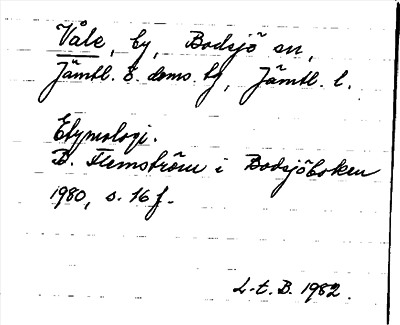 Våle, by, Bodsjö sn,
Jämtl. ö. doms. tg, Jämtl. l.
Etymologi.
B. Flemström i Bodsjöboken
1980, s. 16 f.
L-t. B. 1982.